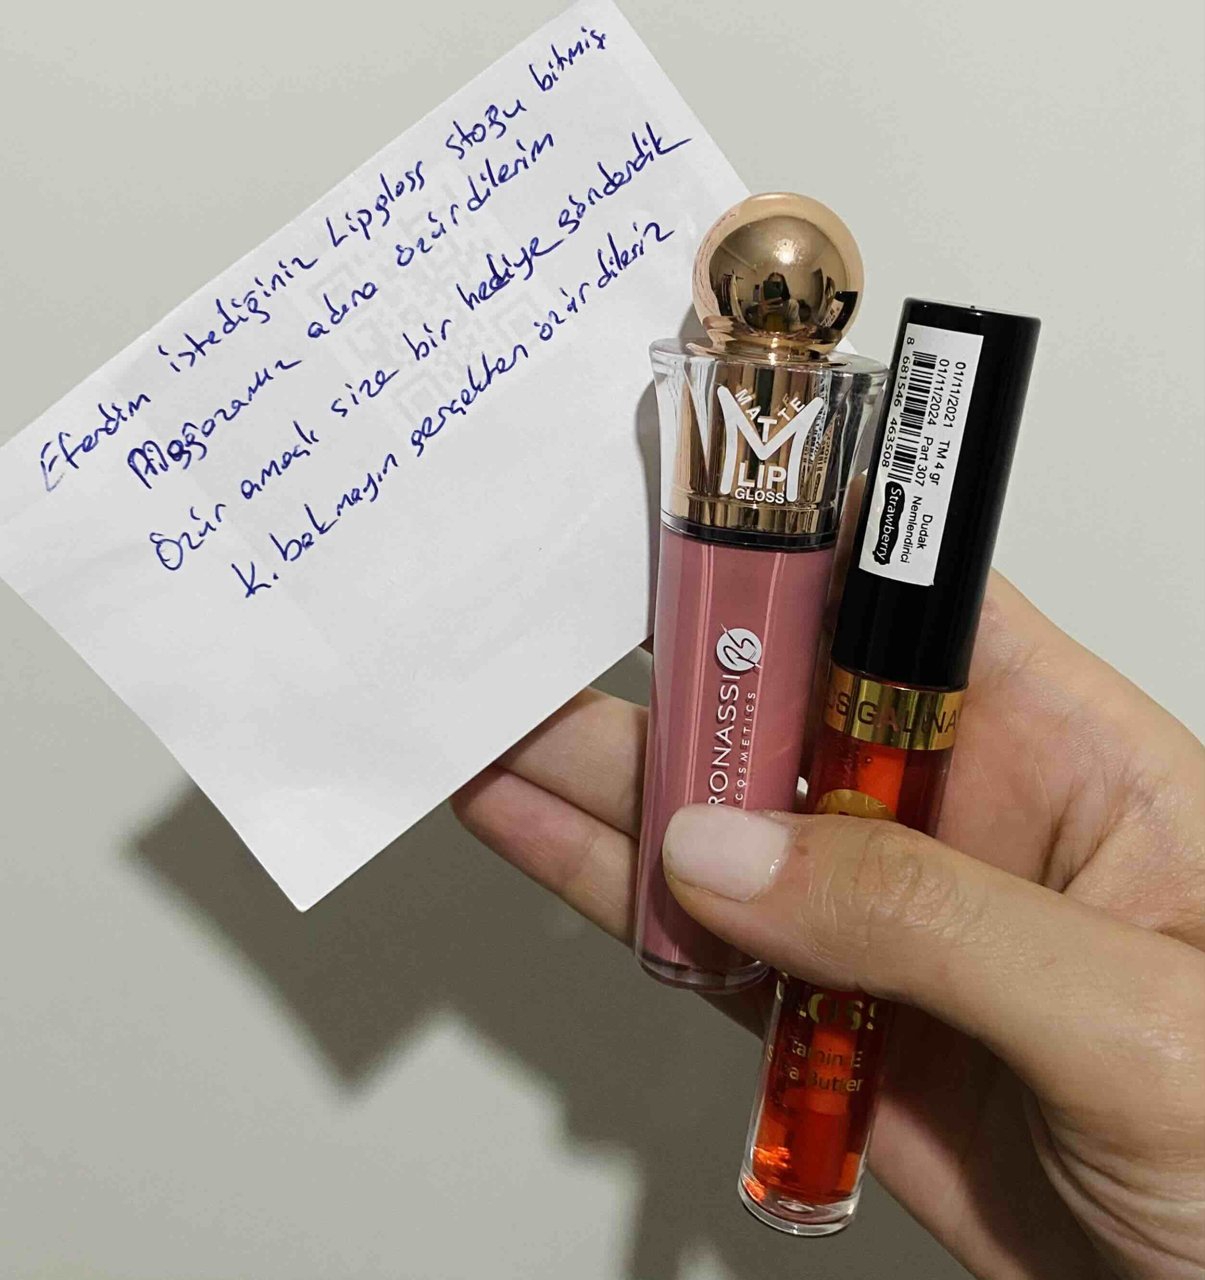 Efendim istediğiniz Lipgloss stoğu bitmiş
adına özür dilerim
Özür amaçlı size bir hediye gönderdik
K. bakmayın gerçekten özür dileriz
MATTE
LIP
GLOSS
RONASSI
COSMETICS
01/11/2021 TM 4 gr Dudak
01/11/2024 Part 307 Nemlendirici
8 681546 463508 Strawberry
GALINA
GLOSS
tamin E
Butter